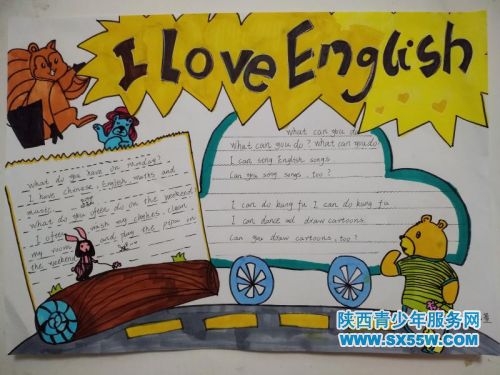 I Love English
What do you have on monday?
I have chinese, English, maths and
music.
What do you often do on the weekend
I often wash my clothes, clean
my room and play the pipa in
the weekend
What can you do
what can you do? What can you do
I can song English songs
Can you song songs, too?
I can do kung fu I can do kung fu
I can dance and draw cartoons
Can you draw cartoons, too?
陕西青少年服务网
www.sx55w.com